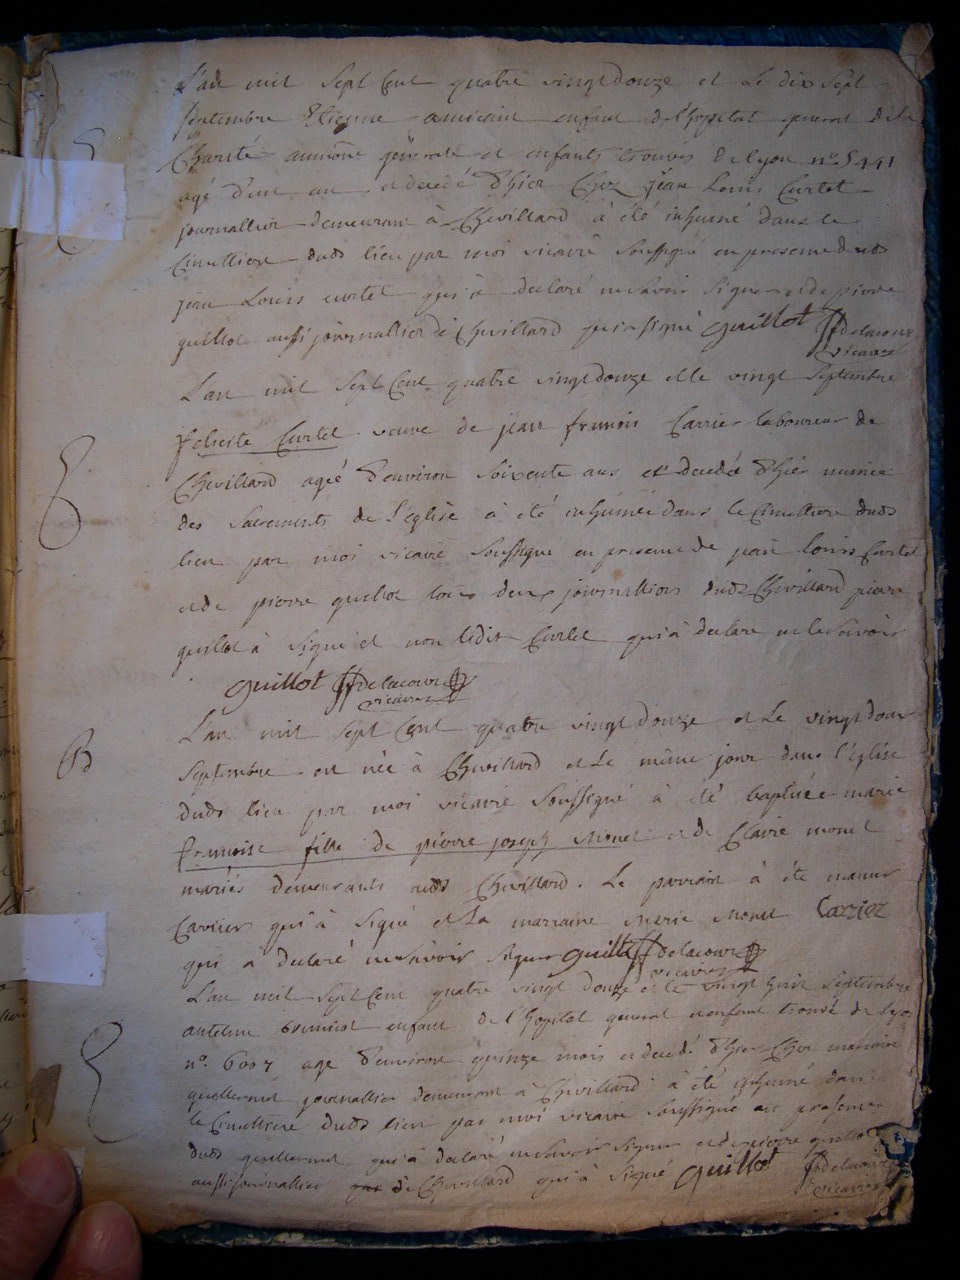 L'an mil sept Cent quatre vingt douze et Le dix sept
septembre Etienne enfant de l'hopital general de la
Charité aumone génerale et enfants trouvés de lyon n° 5441
agé d'un an et decedé d'hier Chez jean Louis Curtet
journallier demeurant à Chevillard à été inhumé dans le
Cimettiere dudt lieu par moi vicaire soussigné en presence dudt
jean Louis curtet qui à declaré ne savoir signer et de pierre
guillot aussi journallier de Chevillard qui a signé guillot Delacour
vicaire
L'an mil sept Cent quatre vingt douze et le vingt septembre
felicité Curtet veuve de jean françois Carrier laboureur de
Chevillard agée d'environ soixente ans et decedée d'hier munie
des sacrements de l'eglise à été inhumée dans le Cimettiere dudt
lieu par moi vicaire soussigné en presence de jean louis Curtet
et de pierre guillot tous deux journalliers dudt Chevillard pierre
guillot à signé et non ledit Curtet qui à declaré ne le savoir
guillot Delacour
vicaire
L'an mil sept Cent quatre vingt douze et Le vingt doux
septembre est née à Chevillard et Le même jour dans l'église
dudt lieu par moi vicaire soussigné à été baptisée marie
françoise fille de pierre joseph Monet et de Claire monet
mariés demeurants audt Chevillard. Le parrain à été
Carrier qui à signé et La marraine Marie Monet Carrier
qui à declaré ne savoir signer guillot Delacour
vicaire
L'an mil sept Cent quatre vingt douze et le vingt huit septembre
antelme enfant de l'hopital general et enfant trouvé de lyon
n° 6057 agé d'environ quinze mois et decedé d'hier Chez
guillermet journallier demeurant à Chevillard à été inhumé dans
le Cimettiere dudt lieu par moi vicaire soussigné en presence
dudt guillermet qui à declaré ne savoir signer et de pierre guillot
aussi journallier de Chevillard qui à signé guillot Delacour
vicaire